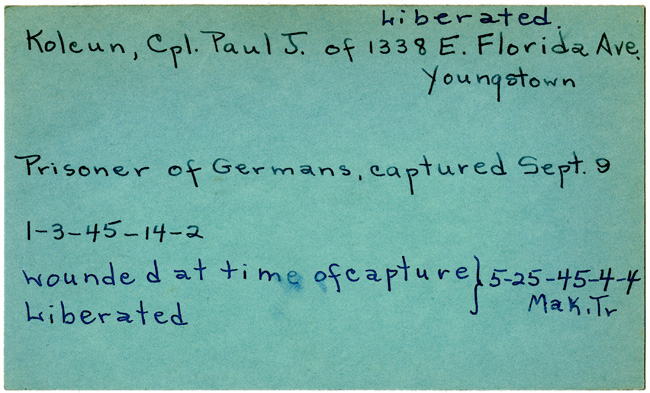 Liberated.
Koleun, Cpl. Paul J. of 1338 E. Florida Ave.
Youngstown
Prisoner of Germans, captured Sept. 9
1-3-45-14-2
wounded at time of capture } 5-25-45-4-4
Liberated Mah.Tr